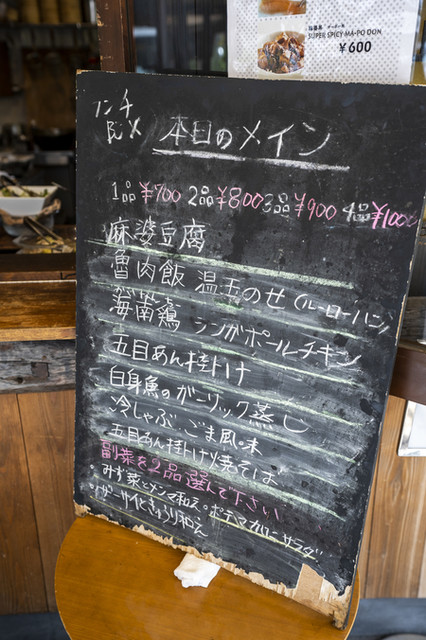 SUPER SPICY MA-PO DON
¥600
ランチ
本日のメイン
1品¥700 2品¥800 3品¥900 4品¥1000
麻婆豆腐
魯肉飯 温玉のせ(ルーローハン)
海南鶏 シンガポールチキン
五目あん掛け
白身魚のガーリック蒸し
冷しゃぶ、ごま風味
五目あん掛け焼そば
副菜を2品選んで下さい
・みず菜とメンマ和え・ポテマカロニサラダ
・ザーサイときゅうり和え